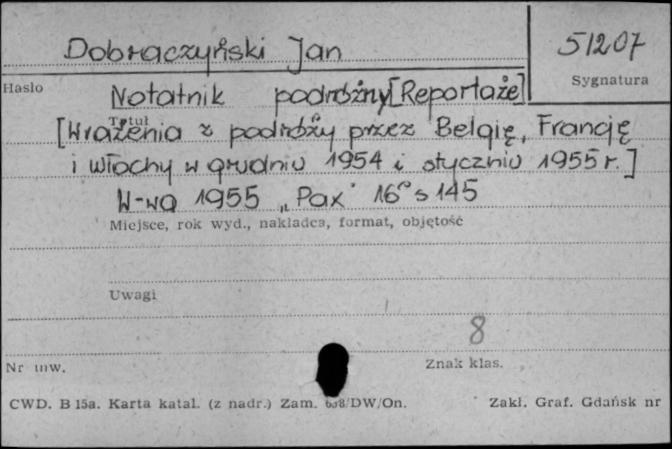 Dobraczyński Jan
51207
Hasło
Sygnatura
Notatnik podróżny [Reportaże]
Tytuł
[Wrażenia z podróży przez Belgię, Francję
i Włochy w grudniu 1954 i styczniu 1955 r.]
W-wa 1955 „Pax" 16° s 145
Miejsce, rok wyd., nakładca, format, objętość
Uwagi
8
Nr inw.
Znak klas.
CWD. B 15a. Karta katal. (z nadr.) Zam. 638/DW/On.
Zakł. Graf. Gdańsk nr